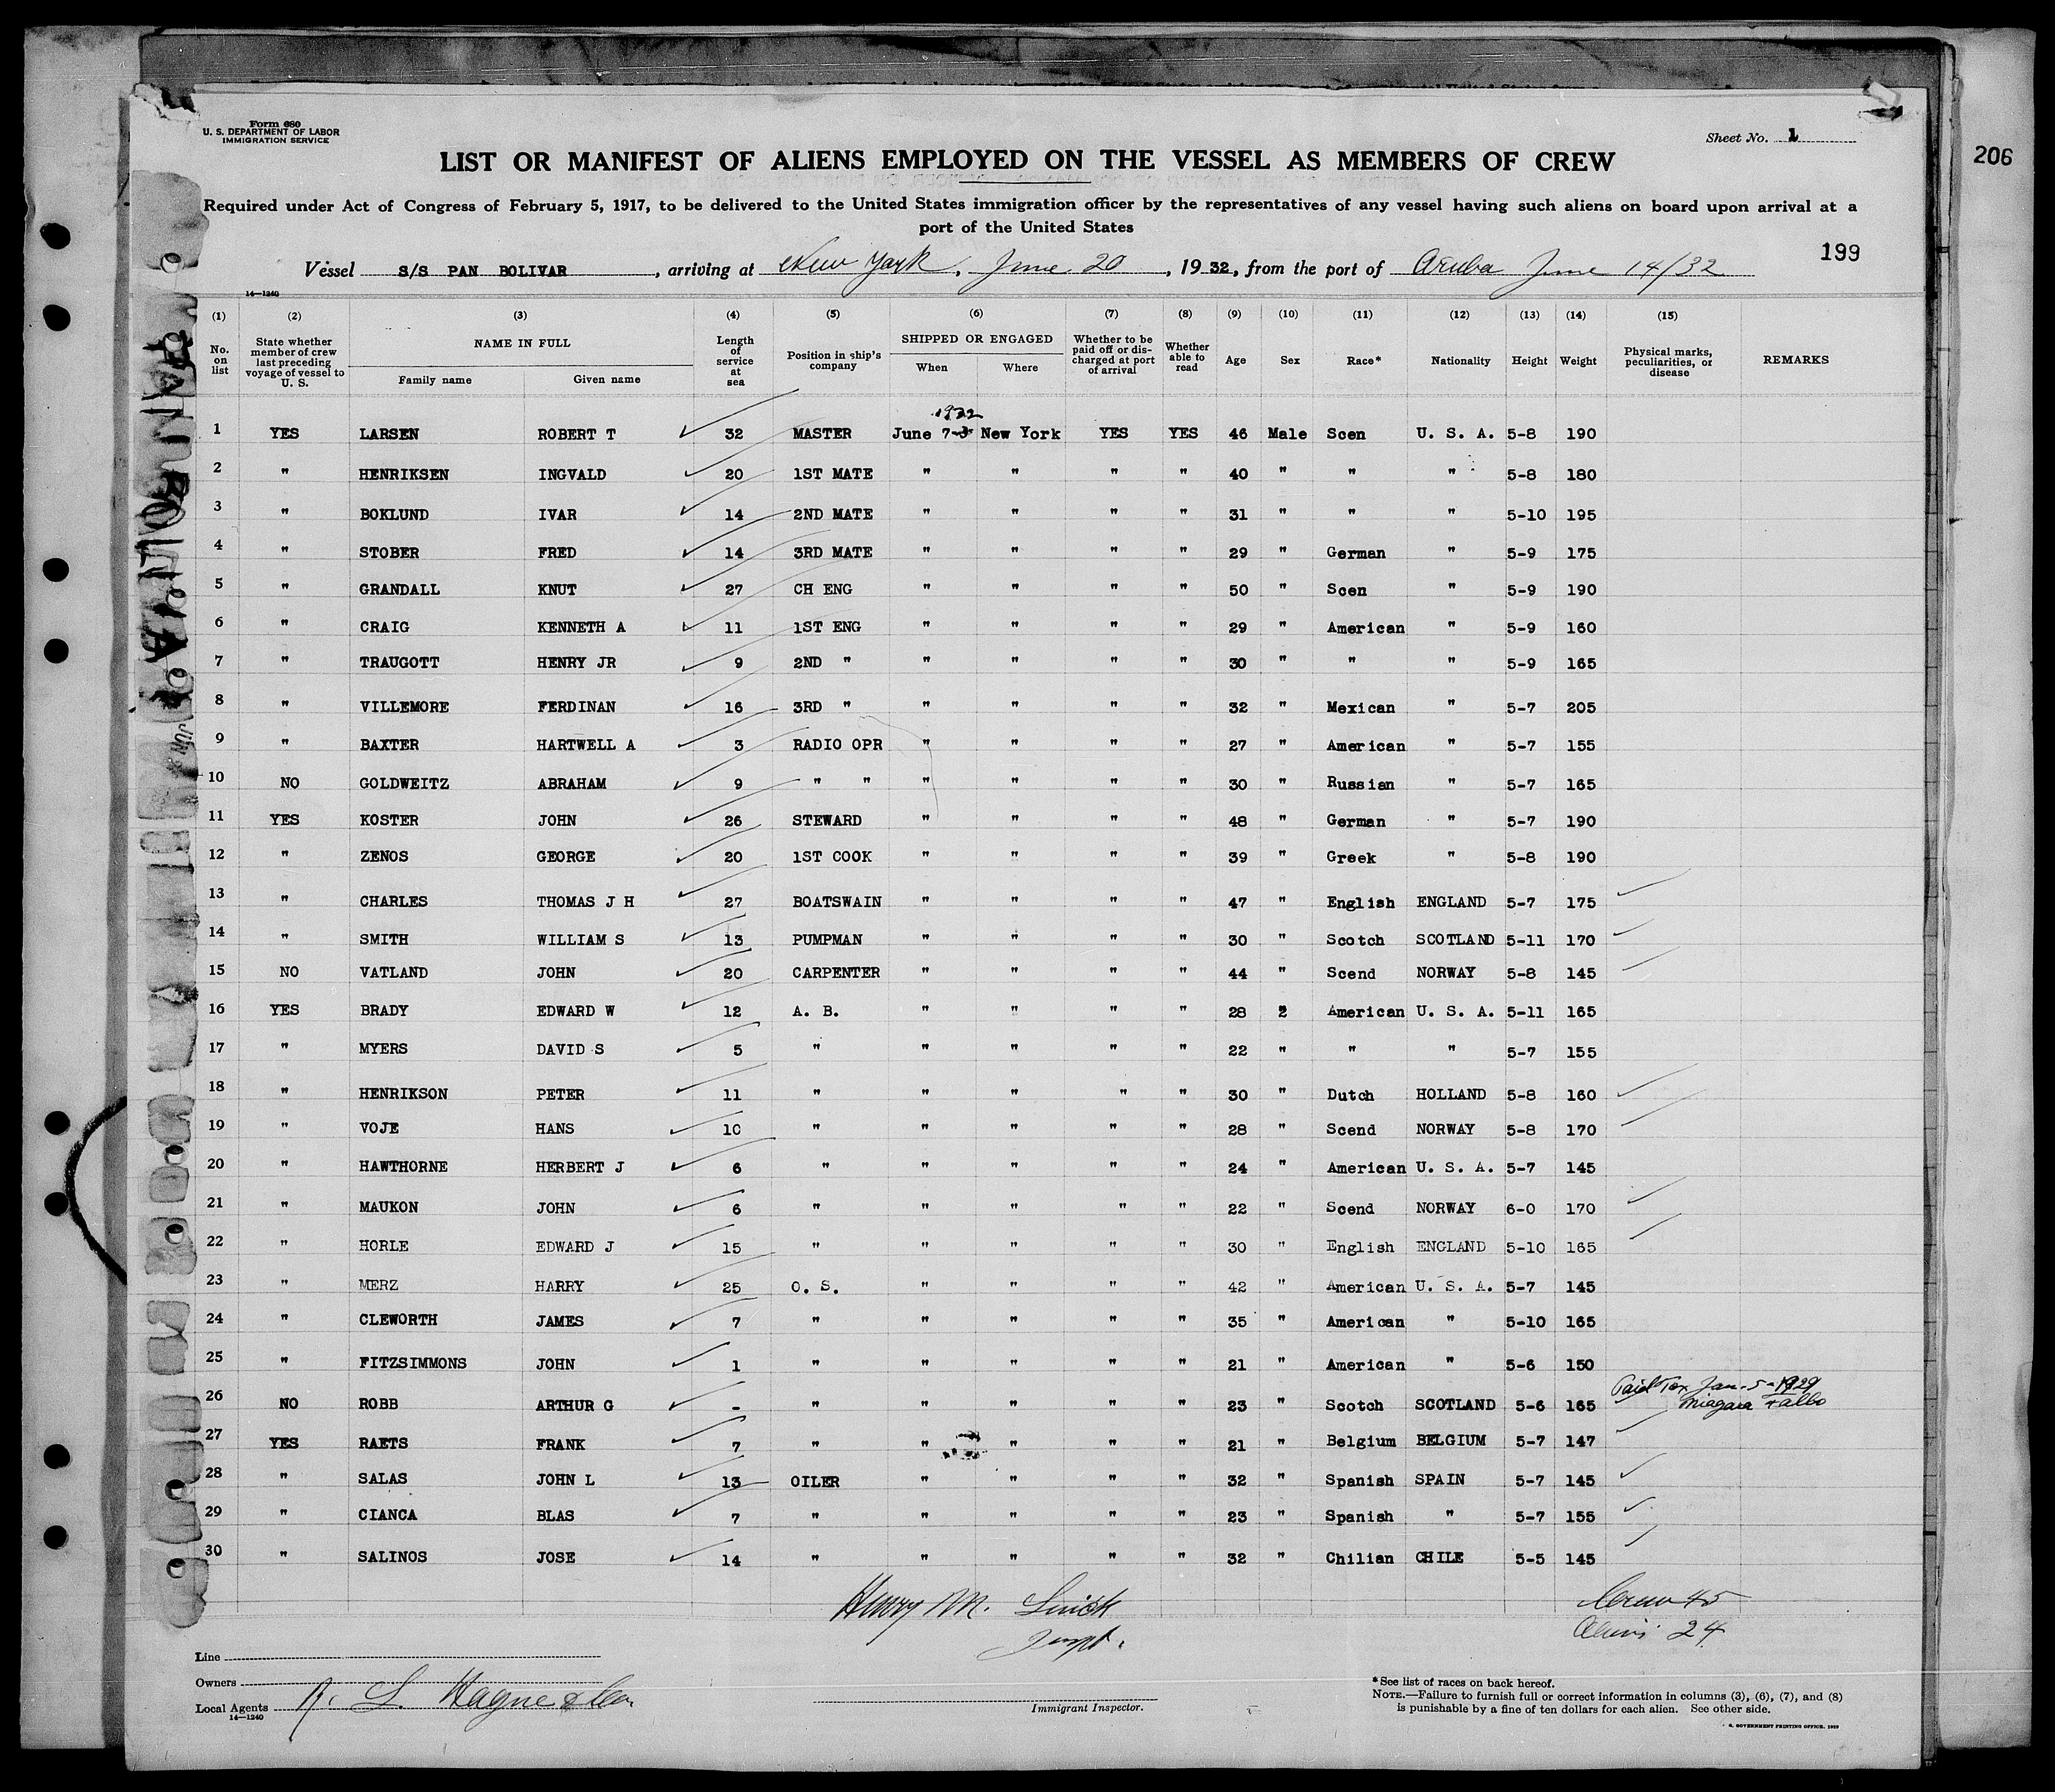 Form 680
U. S. DEPARTMENT OF LABOR
IMMIGRATION SERVICE
Sheet No. 1
206
LIST OR MANIFEST OF ALIENS EMPLOYED ON THE VESSEL AS MEMBERS OF CREW
Required under Act of Congress of February 5, 1917, to be delivered to the United States immigration officer by the representatives of any vessel having such aliens on board upon arrival at a
port of the United States
199
Vessel S/S PAN BOLIVAR, arriving at New York, June 20, 1932, from the port of Aruba June 14/32
14—1240
(1) (2) (3) (4) (5) (6) (7) (8) (9) (10) (11) (12) (13) (14) (15)
No. on list State whether member of crew last preceding voyage of vessel to U. S. NAME IN FULL Family name Given name Length of service at sea Position in ship's company SHIPPED OR ENGAGED When Where Whether to be paid off or discharged at port of arrival Whether able to read Age Sex Race* Nationality Height Weight Physical marks, peculiarities, or disease REMARKS
1932
1 YES LARSEN ROBERT T 32 MASTER June 7-3 New York YES YES 46 Male Scen U. S. A. 5-8 190
2 " HENRIKSEN INGVALD 20 1ST MATE " " " " 40 " " " 5-8 180
3 " BOKLUND IVAR 14 2ND MATE " " " " 31 " " " 5-10 195
4 " STOBER FRED 14 3RD MATE " " " " 29 " German " 5-9 175
5 " GRANDALL KNUT 27 CH ENG " " " " 50 " Scen " 5-9 190
6 " CRAIG KENNETH A 11 1ST ENG " " " " 29 " American " 5-9 160
7 " TRAUGOTT HENRY JR 9 2ND " " " " " 30 " " " 5-9 165
8 " VILLEMORE FERDINAN 16 3RD " " " " " 32 " Mexican " 5-7 205
9 " BAXTER HARTWELL A 3 RADIO OPR " " " " 27 " American " 5-7 155
10 NO GOLDWEITZ ABRAHAM 9 " " " " " " 30 " Russian " 5-7 165
11 YES KOSTER JOHN 26 STEWARD " " " " 48 " German " 5-7 190
12 " ZENOS GEORGE 20 1ST COOK " " " " 39 " Greek " 5-8 190
13 " CHARLES THOMAS J H 27 BOATSWAIN " " " " 47 " English ENGLAND 5-7 175
14 " SMITH WILLIAM S 13 PUMPMAN " " " " 30 " Scotch SCOTLAND 5-11 170
15 NO VATLAND JOHN 20 CARPENTER " " " " 44 " Scend NORWAY 5-8 145
16 YES BRADY EDWARD W 12 A. B. " " " " 28 2 American U. S. A. 5-11 165
17 " MYERS DAVID S 5 " " " " " 22 " " " 5-7 155
18 " HENRIKSON PETER 11 " " " " " 30 " Dutch HOLLAND 5-8 160
19 " VOJE HANS 10 " " " " " 28 " Scend NORWAY 5-8 170
20 " HAWTHORNE HERBERT J 6 " " " " " 24 " American U. S. A. 5-7 145
21 " MAUKON JOHN 6 " " " " " 22 " Scend NORWAY 6-0 170
22 " HORLE EDWARD J 15 " " " " " 30 " English ENGLAND 5-10 165
23 " MERZ HARRY 25 O. S. " " " " 42 " American U. S. A. 5-7 145
24 " CLEWORTH JAMES 7 " " " " " 35 " American " 5-10 165
25 " FITZSIMMONS JOHN 1 " " " " " 21 " American " 5-6 150
26 NO ROBB ARTHUR G - " " " " " 23 " Scotch SCOTLAND 5-6 165 Paid Tax Jan-5-1929 Niagara Falls
27 YES RAETS FRANK 7 " " " " " 21 " Belgium BELGIUM 5-7 147
28 " SALAS JOHN L 13 OILER " " " " 32 " Spanish SPAIN 5-7 145
29 " CIANCA BLAS 7 " " " " " 23 " Spanish " 5-7 155
30 " SALINOS JOSE 14 " " " " " 32 " Chilian CHILE 5-5 145
Henry M.
Inspt.
Crew 45
Aliens 24
Line
Owners
Local Agents R. L. Hague
14—1240
Immigrant Inspector.
*See list of races on back hereof.
NOTE.—Failure to furnish full or correct information in columns (3), (6), (7), and (8)
is punishable by a fine of ten dollars for each alien. See other side.
GOVERNMENT PRINTING OFFICE. 1929